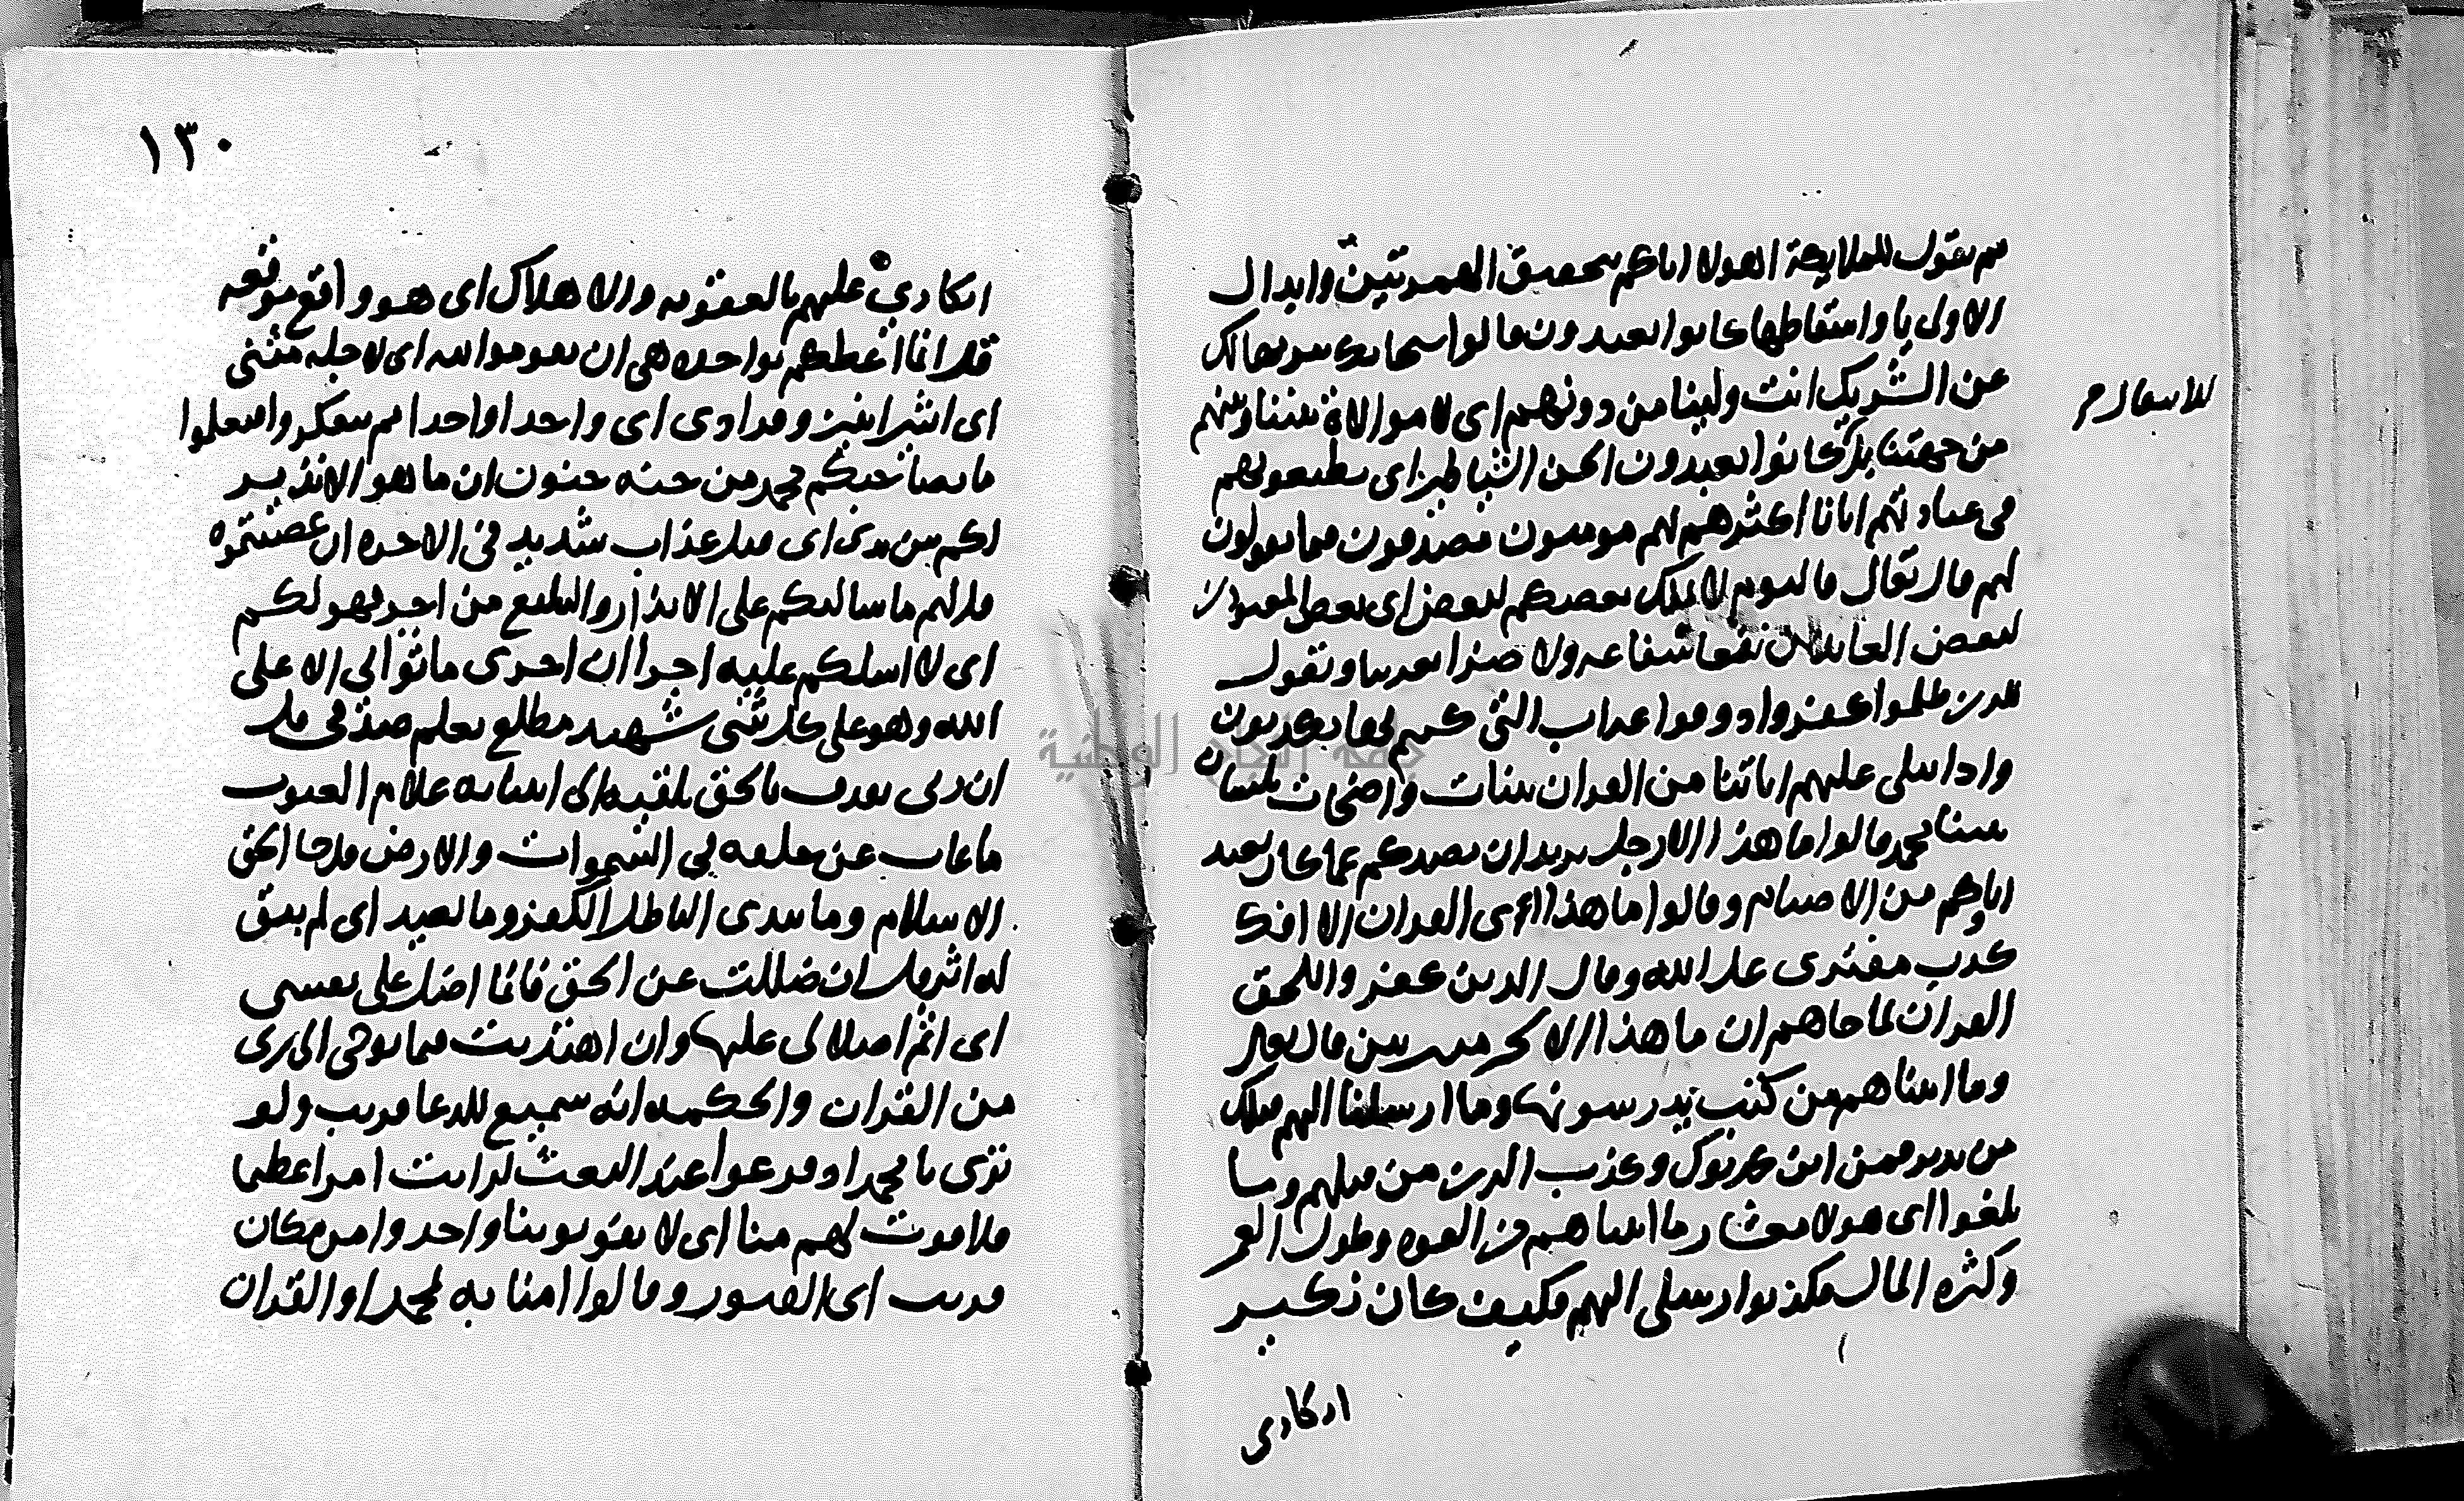 ثم نقول للملايكة اهولا اياكم بتحقيق الهمزتين وابدال
الاولى يا واسقاطها كانوا يعبدون قالوا سبحانك تنزيها لك
عن الشريك انت ولينا من دونهم اى لا موالاة بيننا وبينهم
من جهتنا بل كانوا يعبدون الجن الشياطين اى يطيعونهم
فى عبادتهم ايانا اكثرهم بهم مومنون مصدقون فيما يقولون
لهم قال تعالى فاليوم لا يملك بعضكم لبعض اى بعض المعبودين
لبعض العابدين نفعا شفاعه ولا ضرا تعذيبا ونقول
للذين ظلموا كفروا ذوقوا عذاب النار التى كنتم بها تكذبون
واذا تتلى عليهم اياتنا من القران بينات واضحات بلسان
نبينا محمد قالوا ما هذا الا رجل يريد ان يصدكم عما كان يعبد
اباوكم من الاصنام وقالوا ما هذا اى القران الا افك
كذب مفترى على الله وقال الذين كفروا للحق
القران لما جاهم ان ما هذا الا سحر مبين قال تعالى
وما اتيناهم من كتب يدرسونها وما ارسلنا اليهم قبلك
من نذير فمن اين كذبوك وكذب الذين من قبلهم وما
بلغوا اى هولا معشار ما اتيناهم من القوه وطول العمر
وكثره المال فكذبوا رسلى اليهم فكيف كان نكير
انكارى
١٣٠
انكارى عليهم بالعقوبه والاهلاك اى هو واقع موقعه
قل انما اعظكم بواحده هى ان تقوموا لله اى لاجله مثنى
اى اثنين اثنين وفرادى اى واحدا واحدا ثم تتفكروا فتعلموا
ما بصاحبكم محمد من جنه جنون ان ما هو الا نذير
لكم بين يدى اى قبل عذاب شديد فى الاخره ان عصيتموه
قل لهم ما سالتكم على الانذار والتبليغ من اجر فهو لكم
اى لا اسلكم عليه اجرا ان اجرى ما ثوابى الا على
الله وهو على كل شى شهيد مطلع يعلم صدقى قل
ان ربى يقذف بالحق يلقيه الى انبيائه علام الغيوب
ما غاب عن خلقه فى السموات والارض قل جا الحق
الاسلام وما يبدى الباطل الكفر وما يعيد اى لم يبق
له اثر قل ان ضللت عن الحق فانما اضل على نفسى
اى اثم اضلالى عليها وان اهتديت فبما يوحى الى ربى
من القران والحكمه انه سميع للدعا قريب ولو
ترى يا محمد اذ فزعوا عند البعث لرايت امرا عظيما
فلا فوت لهم منا اى لا يفوتوننا واخذوا من مكان
قريب اى القبور وقالوا امنا به بمحمد او القران
جامعة النجاح الوطنية